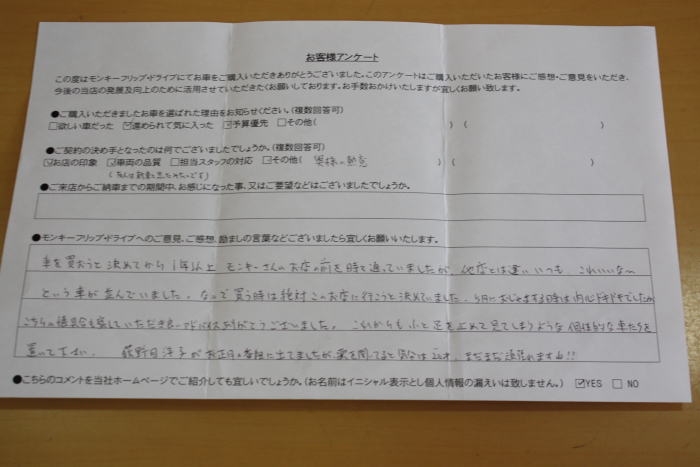 お客様アンケート
この度はモンキーフリップ・ドライブにてお車をご購入いただきありがとうございました。このアンケートはご購入いただいたお客様にご感想・ご意見をいただき、
今後の当店の発展及向上のために活用させていただきたくお願いしております。お手数おかけいたしますが宜しくお願い致します。
●ご購入いただきましたお車を選ばれた理由をお知らせください。(複数回答可)
□欲しい車だった ☑進められて気に入った ☑予算優先 □その他( )( )
●ご契約の決め手となったのは何でございましたでしょうか。(複数回答可)
☑お店の印象 ☑車両の品質 □担当スタッフの対応 ☑その他( 皆様の熱意 )( )
●ご来店からご納車までの期間中、お感じになった事、又はご要望などはございましたでしょうか。
●モンキーフリップ・ドライブへのご意見、ご感想、励ましの言葉などございましたら宜しくお願いいたします。
車を買おうと決めてから1年以上 モンキーさんのお店の前を時々通っていましたが、他店とは違い いつも、これいいな〜
という車が並んでいました。なので買う時は絶対このお店に行こうと決めていました。今日におじゃまする時は内心ドキドキでしたが
こちらの意見も感じていただき良いアドバイスありがとうございました。これからも ふと足を止めて見てしまうような個性的な車たちを
置いて下さい。荻野目洋子がお正月の番組に出てましたが、歌を聞いてると まだまだ頑張れますね!!
●こちらのコメントを当社ホームページでご紹介しても宜しいでしょうか。(お名前はイニシャル表示とし個人情報の漏えいは致しません。) ☑YES □NO